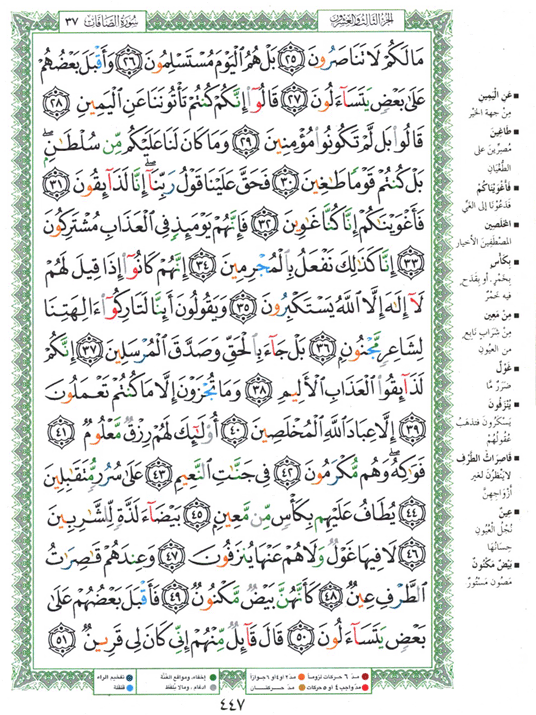 سُورَةُ الصَّافَّاتِ ٣٧
الجُزْءُ الثَّالِثُ وَالعِشْرُونَ
مَا لَكُمْ لَا تَنَاصَرُونَ ٢٥ بَلْ هُمُ الْيَوْمَ مُسْتَسْلِمُونَ ٢٦ وَأَقْبَلَ بَعْضُهُمْ
عَلَىٰ بَعْضٍ يَتَسَاءَلُونَ ٢٧ قَالُوا إِنَّكُمْ كُنْتُمْ تَأْتُونَنَا عَنِ الْيَمِينِ ٢٨
قَالُوا بَلْ لَمْ تَكُونُوا مُؤْمِنِينَ ٢٩ وَمَا كَانَ لَنَا عَلَيْكُمْ مِّن سُلْطَـٰنٍ ۖ
بَلْ كُنْتُمْ قَوْمًا طَـٰغِينَ ٣٠ فَحَقَّ عَلَيْنَا قَوْلُ رَبِّنَا ۖ إِنَّا لَذَائِقُونَ ٣١
فَأَغْوَيْنَـٰكُمْ إِنَّا كُنَّا غَـٰوِينَ ٣٢ فَإِنَّهُمْ يَوْمَئِذٍ فِي الْعَذَابِ مُشْتَرِكُونَ
٣٣ إِنَّا كَذَٰلِكَ نَفْعَلُ بِالْمُجْرِمِينَ ٣٤ إِنَّهُمْ كَانُوا إِذَا قِيلَ لَهُمْ
لَا إِلَـٰهَ إِلَّا اللَّهُ يَسْتَكْبِرُونَ ٣٥ وَيَقُولُونَ أَئِنَّا لَتَارِكُوا ءَالِهَتِنَا
لِشَاعِرٍ مَّجْنُونٍ ٣٦ بَلْ جَاءَ بِالْحَقِّ وَصَدَّقَ الْمُرْسَلِينَ ٣٧ إِنَّكُمْ
لَذَائِقُوا الْعَذَابِ الْأَلِيمِ ٣٨ وَمَا تُجْزَوْنَ إِلَّا مَا كُنْتُمْ تَعْمَلُونَ
٣٩ إِلَّا عِبَادَ اللَّهِ الْمُخْلَصِينَ ٤٠ أُولَـٰئِكَ لَهُمْ رِزْقٌ مَّعْلُومٌ ٤١
فَوَاكِهُ ۖ وَهُم مُّكْرَمُونَ ٤٢ فِي جَنَّـٰتِ النَّعِيمِ ٤٣ عَلَىٰ سُرُرٍ مُّتَقَـٰبِلِينَ
٤٤ يُطَافُ عَلَيْهِم بِكَأْسٍ مِّن مَّعِينٍ ٤٥ بَيْضَاءَ لَذَّةٍ لِّلشَّـٰرِبِينَ
٤٦ لَا فِيهَا غَوْلٌ وَلَا هُمْ عَنْهَا يُنْزَفُونَ ٤٧ وَعِنْدَهُمْ قَـٰصِرَٰتُ
الطَّرْفِ عِينٌ ٤٨ كَأَنَّهُنَّ بَيْضٌ مَّكْنُونٌ ٤٩ فَأَقْبَلَ بَعْضُهُمْ عَلَىٰ
بَعْضٍ يَتَسَاءَلُونَ ٥٠ قَالَ قَائِلٌ مِّنْهُمْ إِنِّي كَانَ لِي قَرِينٌ ٥١
■ عَنِ الْيَمِينِ
مِنْ جِهَةِ الخَيْرِ
■ طَاغِينَ
مُصِرِّينَ عَلَى
الطُّغْيَانِ
■ فَأَغْوَيْنَاكُمْ
فَدَعَوْنَاكُمْ إِلَى الغَيِّ
■ المُخْلَصِينَ
المُصْطَفِينَ الأَخْيَارِ
■ بِكَأْسٍ
بِخَمْرٍ، أَو بِقَدَحٍ
فِيهِ خَمْرٌ
■ مِنْ مَعِينٍ
مِنْ شَرَابٍ نَابِعٍ
مِنَ العُيُونِ
■ غَوْلٌ
ضَرَرٌ مَّا
■ يُنْزَفُونَ
يَسْكَرُونَ فَتَذْهَبُ
عُقُولُهُمْ
■ قَاصِرَاتُ الطَّرْفِ
لَا يَنْظُرْنَ لِغَيْرِ
أَزْوَاجِهِنَّ
■ عِينٌ
نُجْلُ العُيُونِ
حِسَانُهَا
■ بَيْضٌ مَكْنُونٌ
مَصُونٌ مَسْتُورٌ
مدّ ٦ حركات لزوماً
مدّ ٢ أو ٤ أو ٦ جوازاً
إخفاء، ومواقع الغنّة
تفخيم الراء
مدّ واجب ٤ أو ٥ حركات
مدّ حركتان
إدغام، وما لا يُلفظ
قلقلة
٤٤٧